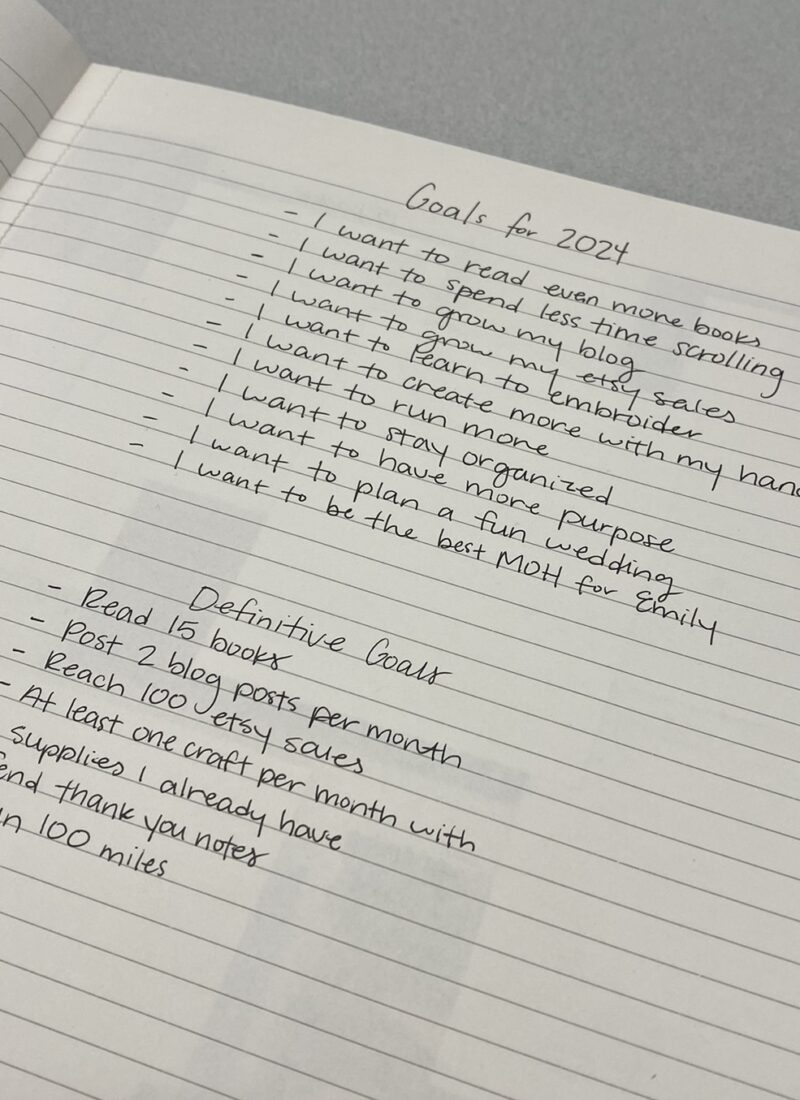 Goals for 2024
- I want to read even more books
- I want to spend less time scrolling
- I want to grow my blog
- I want to grow my etsy sales
- I want to learn to embroider
- I want to create more with my hand
- I want to run more
- I want to stay organized
- I want to have more purpose
- I want to plan a fun wedding
- I want to be the best MOH for Emily
Definitive Goals
- Read 15 books
- Post 2 blog posts per month
- Reach 100 etsy sales
- At least one craft per month with
supplies I already have
end thank you notes
n 100 miles